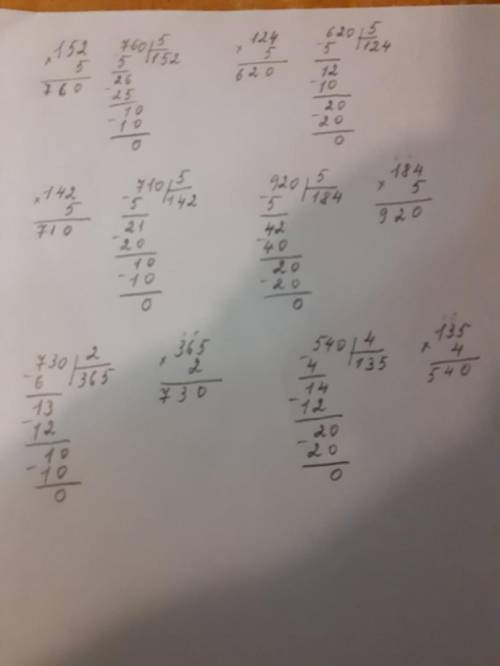 × 152
5
760
760 | 5
5 | 152
26
- 25
10
- 10
0
× 124
5
620
620 | 5
- 5 | 124
12
- 10
20
- 20
0
× 142
5
710
- 710 | 5
5 | 142
21
- 20
10
- 10
0
- 920 | 5
5 | 184
42
- 40
20
- 20
0
× 184
5
920
- 730 | 2
6 | 365
13
- 12
10
- 10
0
× 365
2
730
- 540 | 4
4 | 135
14
- 12
20
- 20
0
× 135
4
540